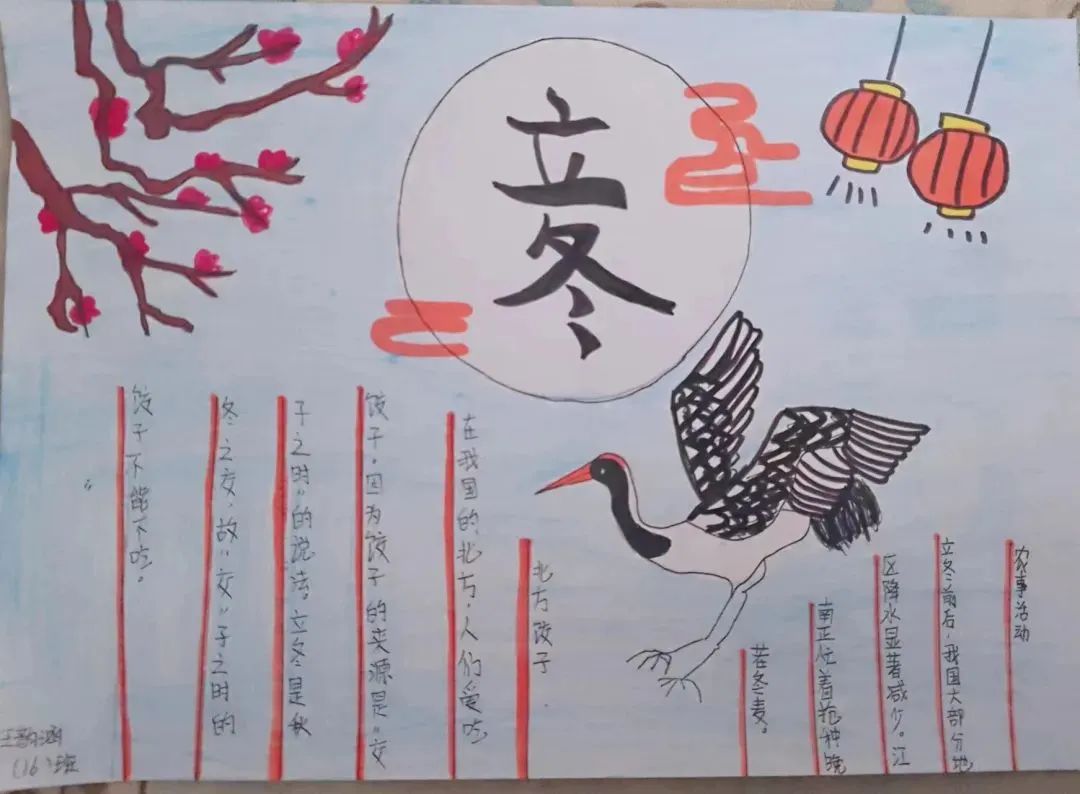 立冬
农事活动
立冬前后,我国大部分地
区降水显著减少。江
南正忙着抢种晚
茬冬麦。
北方饺子
在我国的北方,人们爱吃
饺子,因为饺子的来源是“交
子之时”的说法。立冬是秋
冬之交,故“交”子之时的
饺子不能不吃。
王韵涵
(16)班